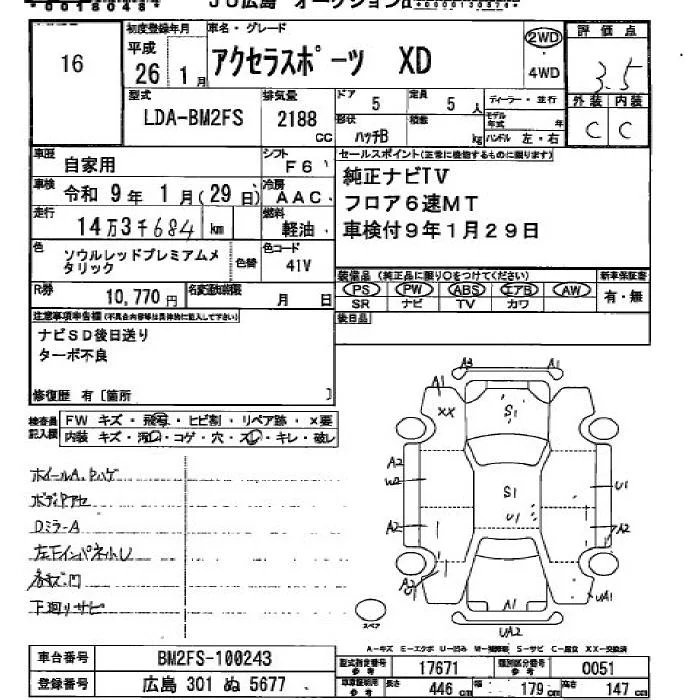 JU広島 オークション
16
初度登録年月
平成
26年 1月
車名・グレード
アクセラスポーツ XD
2WD
・
4WD
評価点
3.5
外装 内装
C C
型式
LDA-BM2FS
排気量
2188
cc
ドア
5
定員
5人
ディーラー・並行
形状
ハッチB
積載
kg
モデル年式
年
ハンドル 左・右
車歴
自家用
シフト
F6
車検
令和 9年 1月(29日)
冷房
AAC
走行
14万3千684 km
燃料
軽油
色
ソウルレッドプレミアムメタリック
色替
色コード
41V
R券
10,770円
名変通知期限
月 日
セールスポイント(正常に機能するものに限ります)
純正ナビTV
フロア6速MT
車検付9年1月29日
装備品(純正品に限り○をつけてください)
新車保証書
PS PW ABS エアB AW
SR ナビ TV カワ
有・無
後日品
注意事項申告欄(不具合内容等は具体的に記入して下さい)
ナビSD後日送り
ターボ不良
修復歴 有〔箇所 〕
検査員記入欄
FW キズ・飛石・ヒビ割・リペア跡・×要
内装 キズ・汚れ・コゲ・穴・スレ・キレ・破レ
ホイールA,Pハゲ
ボディPアセ
DミラーA
左下インパネトレ
各キズ凹
下廻りサビ
A3 A1
A1
XX
S1
A2
W2
S1
U1
U1
A2
A2
A2
A1
UA1
UA2
スペア
A-キズ E-エクボ U-凹み W-補修跡 S-サビ C-腐食 XX-交換済
車台番号
BM2FS-100243
登録番号
広島 301 ぬ 5677
型式指定番号
参考
17671
類別区分番号
参考
0051
車庫証明用
参考
長さ
446cm
幅
179cm
高さ
147cm